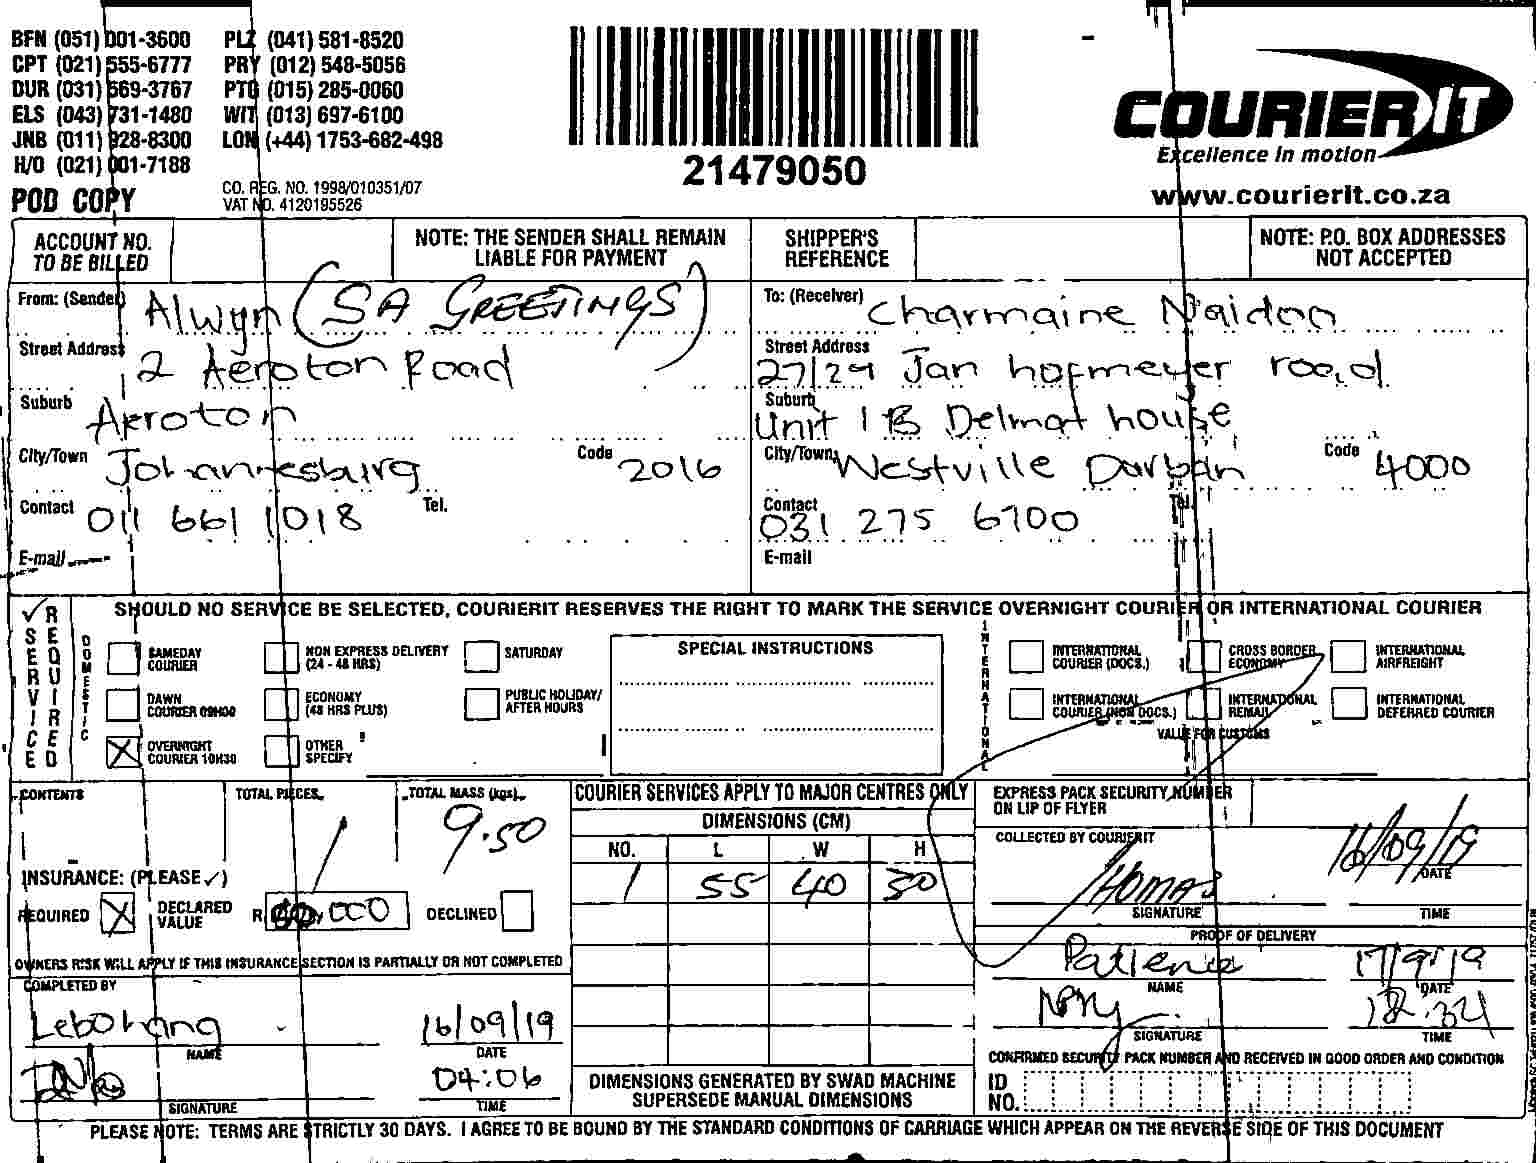 BFN (051) 001-3600 PLZ (041) 581-8520
CPT (021) 555-6777 PRY (012) 548-5056
DUR (031) 569-3767 PTG (015) 285-0060
ELS (043) 731-1480 WIT (013) 697-6100
JNB (011) 928-8300 LON (+44) 1753-682-498
H/O (021) 001-7188
POD COPY
CO. REG. NO. 1998/010351/07
VAT NO. 4120195526
21479050
COURIERIT
Excellence in motion
www.courierit.co.za
ACCOUNT NO. TO BE BILLED
NOTE: THE SENDER SHALL REMAIN LIABLE FOR PAYMENT
SHIPPER'S REFERENCE
NOTE: P.O. BOX ADDRESSES NOT ACCEPTED
From: (Sender) Alwyn (SA GREETINGS)
Street Address 2 Aeroton Road
Suburb Aeroton
City/Town Johannesburg Code 2016
Contact 011 661 1018 Tel.
E-mail
To: (Receiver) Charmaine Naidoo
Street Address 27/29 Jan hofmeyer road
Suburb Unit 1B Delmat house
City/Town Westville Durban Code 4000
Contact 031 275 6700 Tel.
E-mail
✓ SERVICE REQUIRED
SHOULD NO SERVICE BE SELECTED, COURIERIT RESERVES THE RIGHT TO MARK THE SERVICE OVERNIGHT COURIER OR INTERNATIONAL COURIER
DOMESTIC
SAMEDAY COURIER
NON EXPRESS DELIVERY (24 - 48 HRS)
SATURDAY
DAWN COURIER 09H00
ECONOMY (48 HRS PLUS)
PUBLIC HOLIDAY/ AFTER HOURS
X OVERNIGHT COURIER 10H30
OTHER SPECIFY
SPECIAL INSTRUCTIONS
INTERNATIONAL
INTERNATIONAL COURIER (DOCS.)
CROSS BORDER ECONOMY
INTERNATIONAL AIRFREIGHT
INTERNATIONAL COURIER (NON DOCS.)
INTERNATIONAL REMAIL
INTERNATIONAL DEFERRED COURIER
VALUE FOR CUSTOMS
CONTENTS
TOTAL PIECES 1
TOTAL MASS (kgs) 9.50
INSURANCE: (PLEASE ✓)
REQUIRED X DECLARED VALUE R DECLINED
OWNERS RISK WILL APPLY IF THIS INSURANCE SECTION IS PARTIALLY OR NOT COMPLETED
COMPLETED BY
Lebohang 16/09/19
NAME DATE
04:06
SIGNATURE TIME
COURIER SERVICES APPLY TO MAJOR CENTRES ONLY
DIMENSIONS (CM)
NO. L W H
1 55 40 30
DIMENSIONS GENERATED BY SWAD MACHINE SUPERSEDE MANUAL DIMENSIONS
EXPRESS PACK SECURITY NUMBER ON LIP OF FLYER
COLLECTED BY COURIERIT
THOMAS 16/09/19
DATE
SIGNATURE TIME
PROOF OF DELIVERY
Patience 17/9/19
NAME DATE
12:34
SIGNATURE TIME
CONFIRMED SECURITY PACK NUMBER AND RECEIVED IN GOOD ORDER AND CONDITION
ID NO.
PLEASE NOTE: TERMS ARE STRICTLY 30 DAYS. I AGREE TO BE BOUND BY THE STANDARD CONDITIONS OF CARRIAGE WHICH APPEAR ON THE REVERSE SIDE OF THIS DOCUMENT